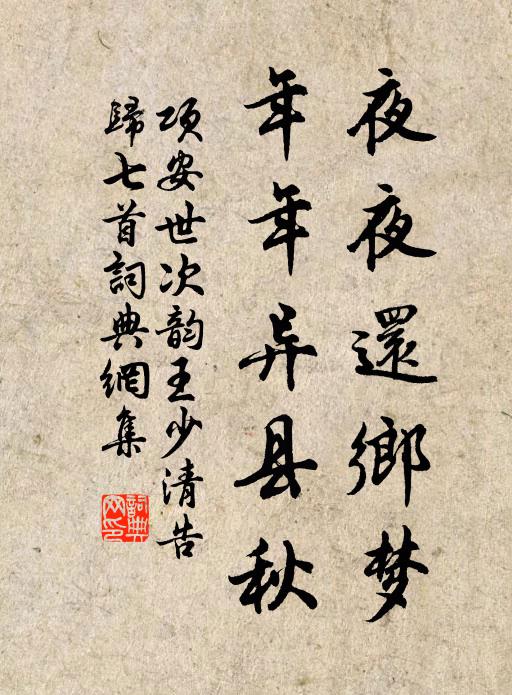 夜夜還鄉梦
年年异县秋
项安世次韵王少清告
歸七首詞典網集
詞典
网印